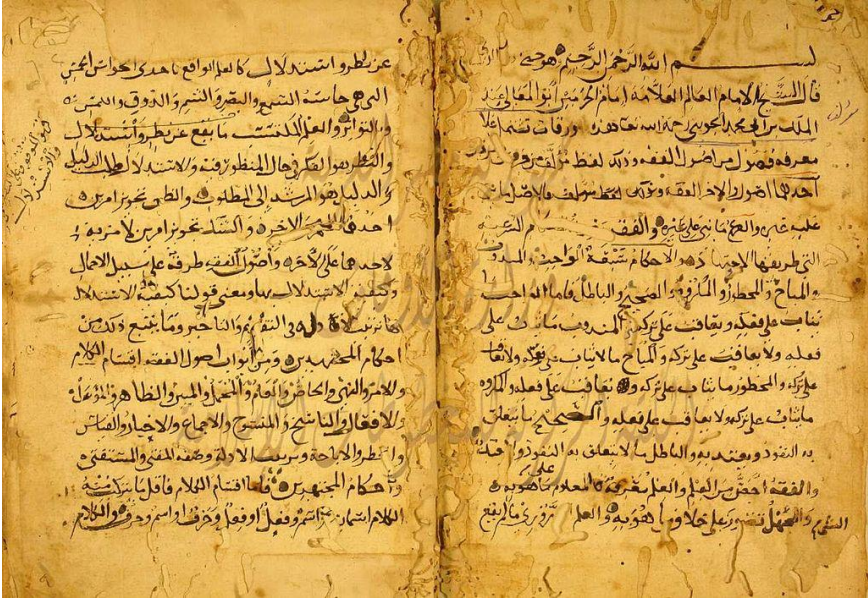 بسم الله الرحمن الرحيم هو حسبي
قال الشيخ الامام العالم العلامة امام الحرمين ابو المعالي عبد
الملك بن ابي محمد الجويني رحمه الله تعالى هذه ورقات تشتمل على
معرفة فصول من اصول الفقه وذلك لفظ مؤلف من جزءين مفردين
احدهما اصول والاخر الفقه فالاصل ما بني
عليه غيره والفرع ما بني على غيره والفقه الشرعية
التي طريقها الاجتهاد والاحكام سبعة الواجب والمندوب
والمباح والمحظور والمكروه والصحيح والباطل فاما الواجب ما
يثاب على فعله ويعاقب على تركه والمندوب ما يثاب على
فعله ولا يعاقب على تركه والمباح ما لا يثاب على فعله ولا يعاقب
على تركه والمحظور ما يثاب على تركه ويعاقب على فعله والمكروه
ما يثاب على تركه ولا يعاقب على فعله والصحيح ما يتعلق
به النفوذ ويعتد به والباطل ما لا يتعلق به النفوذ ولا يعتد به
والفقه اخص من العلم والعلم معرفة المعلوم على ما هو به
والجهل تصور على خلاف ما هو به والعلم الضروري ما لم يقع
عن نظر واستدلال كالعلم الواقع باحدى الحواس الخمس
التي هي حاسة السمع والبصر والشم والذوق واللمس
والتواتر والعلم المكتسب ما يقع عن نظر واستدلال
والنظر هو الفكر في حال المنظور فيه والاستدلال طلب الدليل
والدليل هو المرشد الى المطلوب والظن تجويز امرين
احدهما اظهر من الاخر والشك تجويز امرين لا مزية
لاحدهما على الاخر واصول الفقه طرقه على سبيل الاجمال
وكيفية الاستدلال بها ومعنى قولنا كيفية الاستدلال
بها ترتيب الادلة في التقديم والتاخير وما يتبع ذلك من
احكام المجتهدين ومن ابواب اصول الفقه اقسام الكلام
والامر والنهي والخاص والعام والمجمل والمبين والظاهر والمؤول
والافعال والناسخ والمنسوخ والاجماع والاخبار والقياس
والحظر والاباحة وترتيب الادلة وصفة المفتي والمستفتي
واحكام المجتهدين فاما اقسام الكلام فاقل ما يتركب منه
الكلام اسمان او اسم وفعل او فعل وحرف او اسم وحرف والكلام